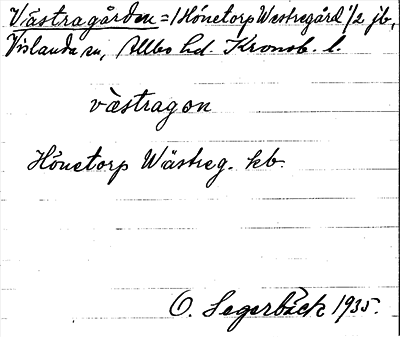 Västragården = /Hönetorp Westregård 1/2 jb,
Vislanda sn, Allbo hd. Kronob. l.
västragon
Hönetorp Wästreg. kb.
O. Segerbäck 1935.